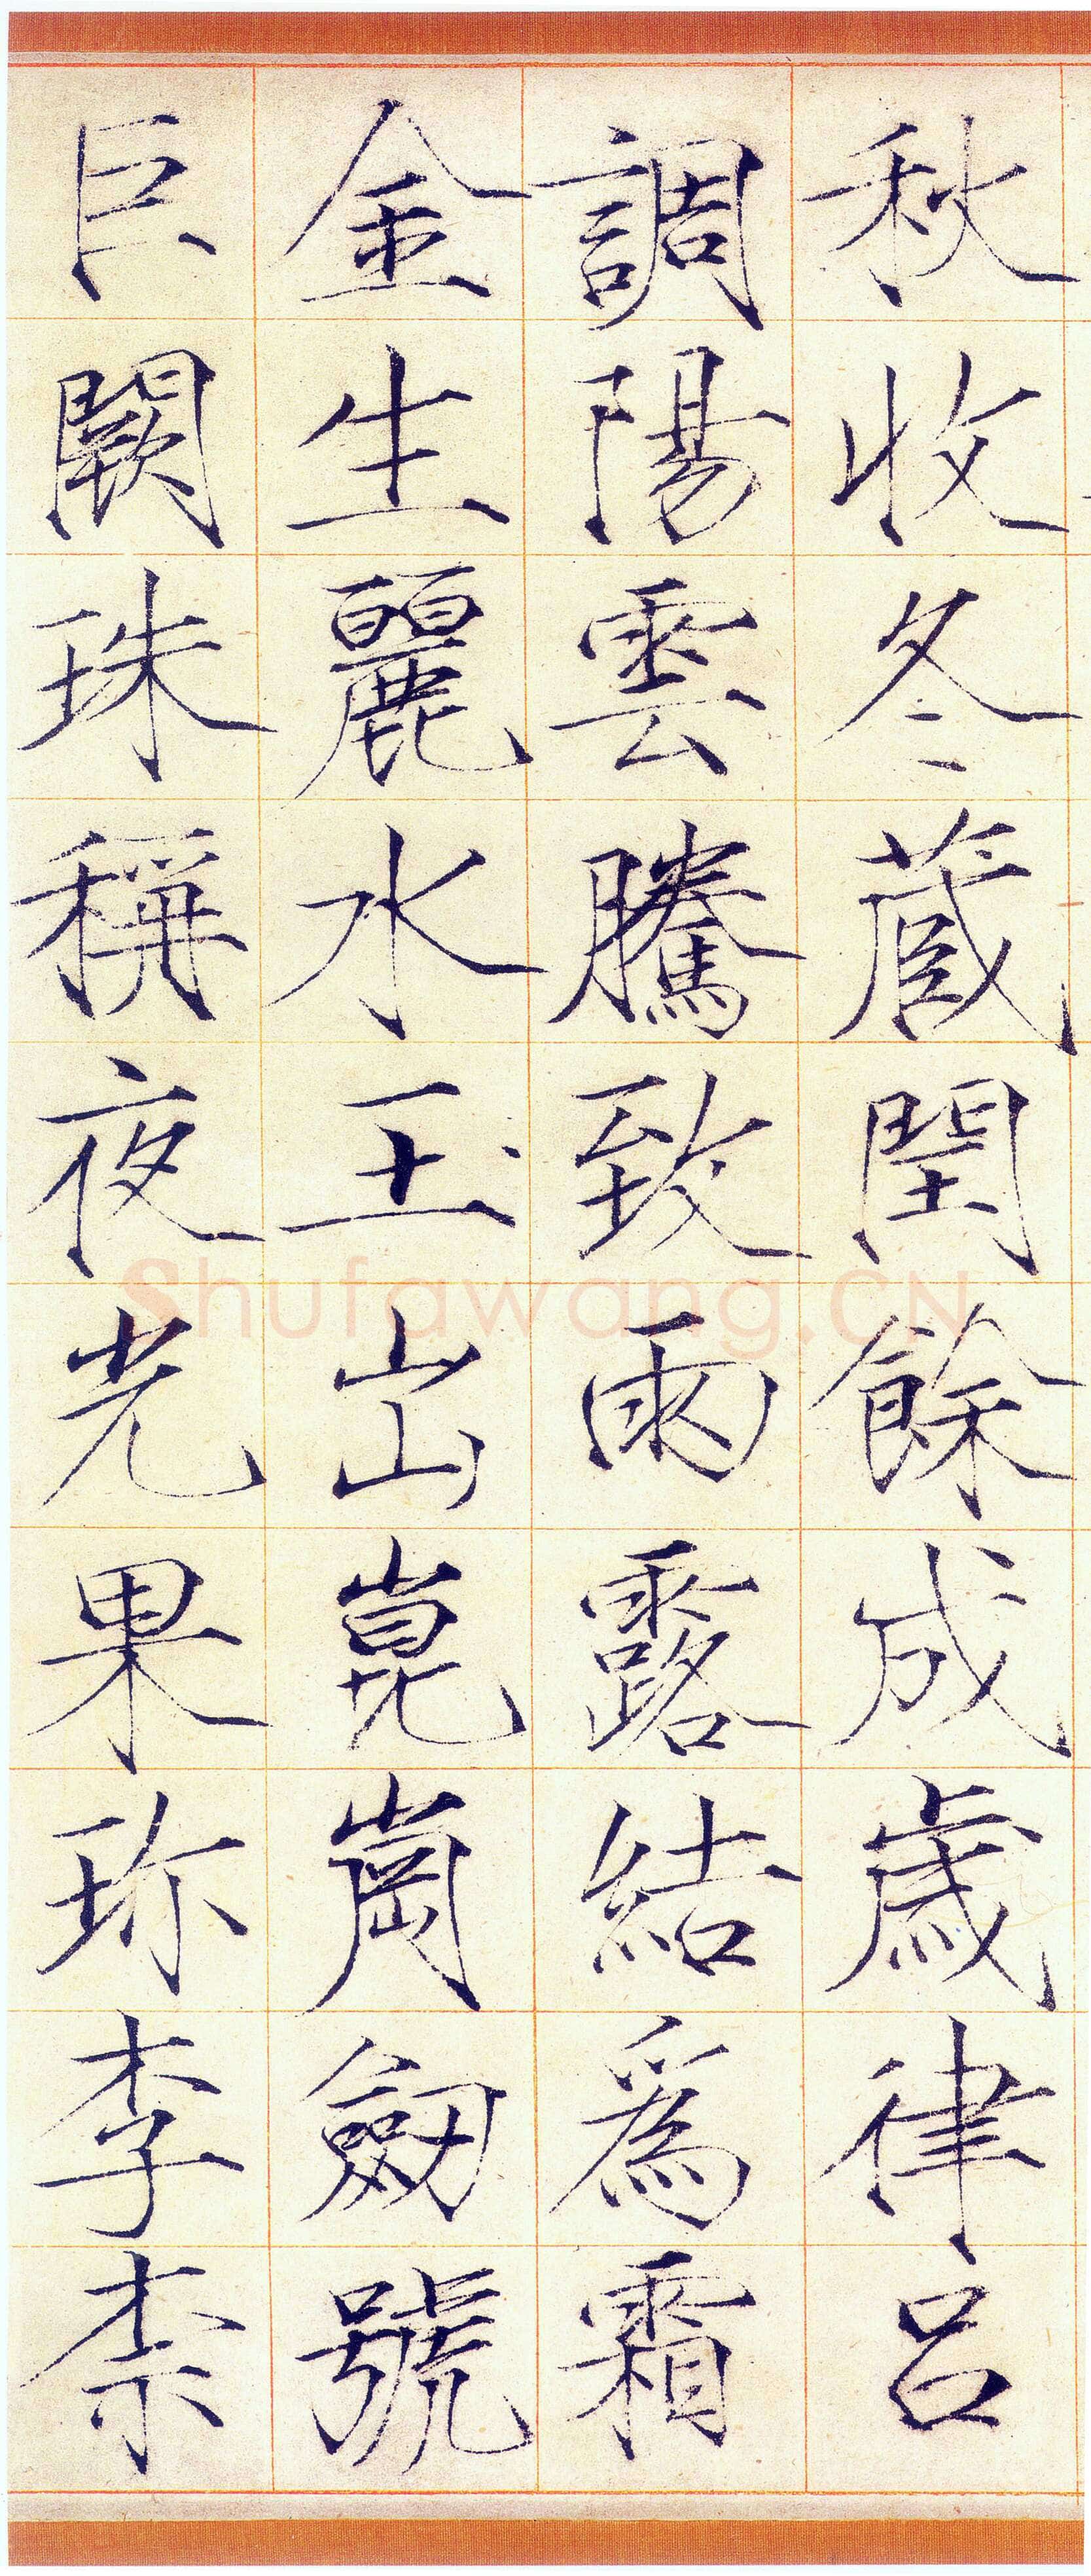 秋收冬蔵閏餘成歲律呂
調陽雲騰致雨露結爲霜
金生麗水玉出崑崗劒號
巨闕珠稱夜光果珎李柰
Shufawang.CN